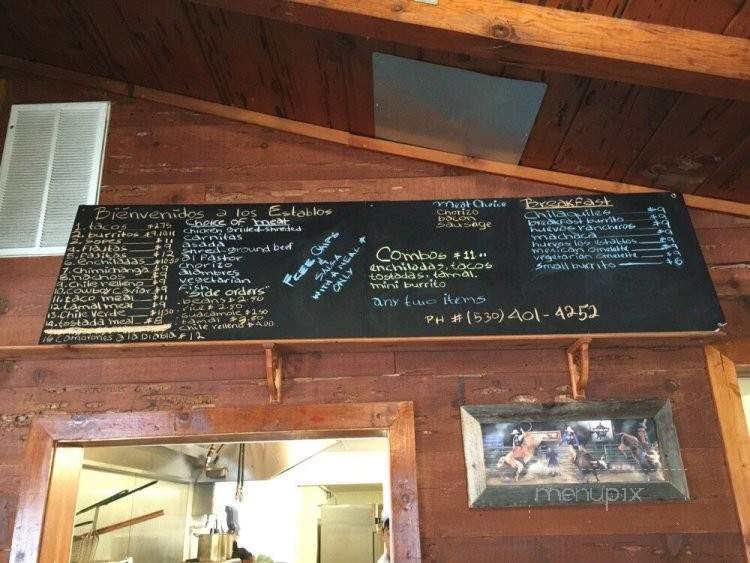 Bienvenidos a los Establos
1. tacos $1.75
2. burritos
3. sopes
4. tortas
5. fajitas
6. Enchiladas
7. Chimichanga
8. nachos
9. Chile relleno
10. cowboy caviar
11. taco meal
12. tamal meal
13. Chile Verde $11.50
14. tostada meal
16 Camarones a la Diabla $12
Choice of meat
Chicken grilled-shreded
Carnitas
asada
shred-ground beef
al Pastor
Chorizo
alambres
vegetarian
Fish
"side orders"
beans $2.50
rice $2.50
Guacamole $2.50
tamal
Chile relleno $4.00
Free chips
&
salsa
with meal
only
meat Choice
Chorizo
bacon
sausage
Combos $11.00
enchiladas, tacos
tostadas, tamal,
mini burrito
any two items
PH # (530) 401-4252
Breakfast
Chilaquiles $9
breakfast burrito
huevos rancheros
machaca
huevos los establos
mexican omelette
vegetarian omelette
small burrito
menupix